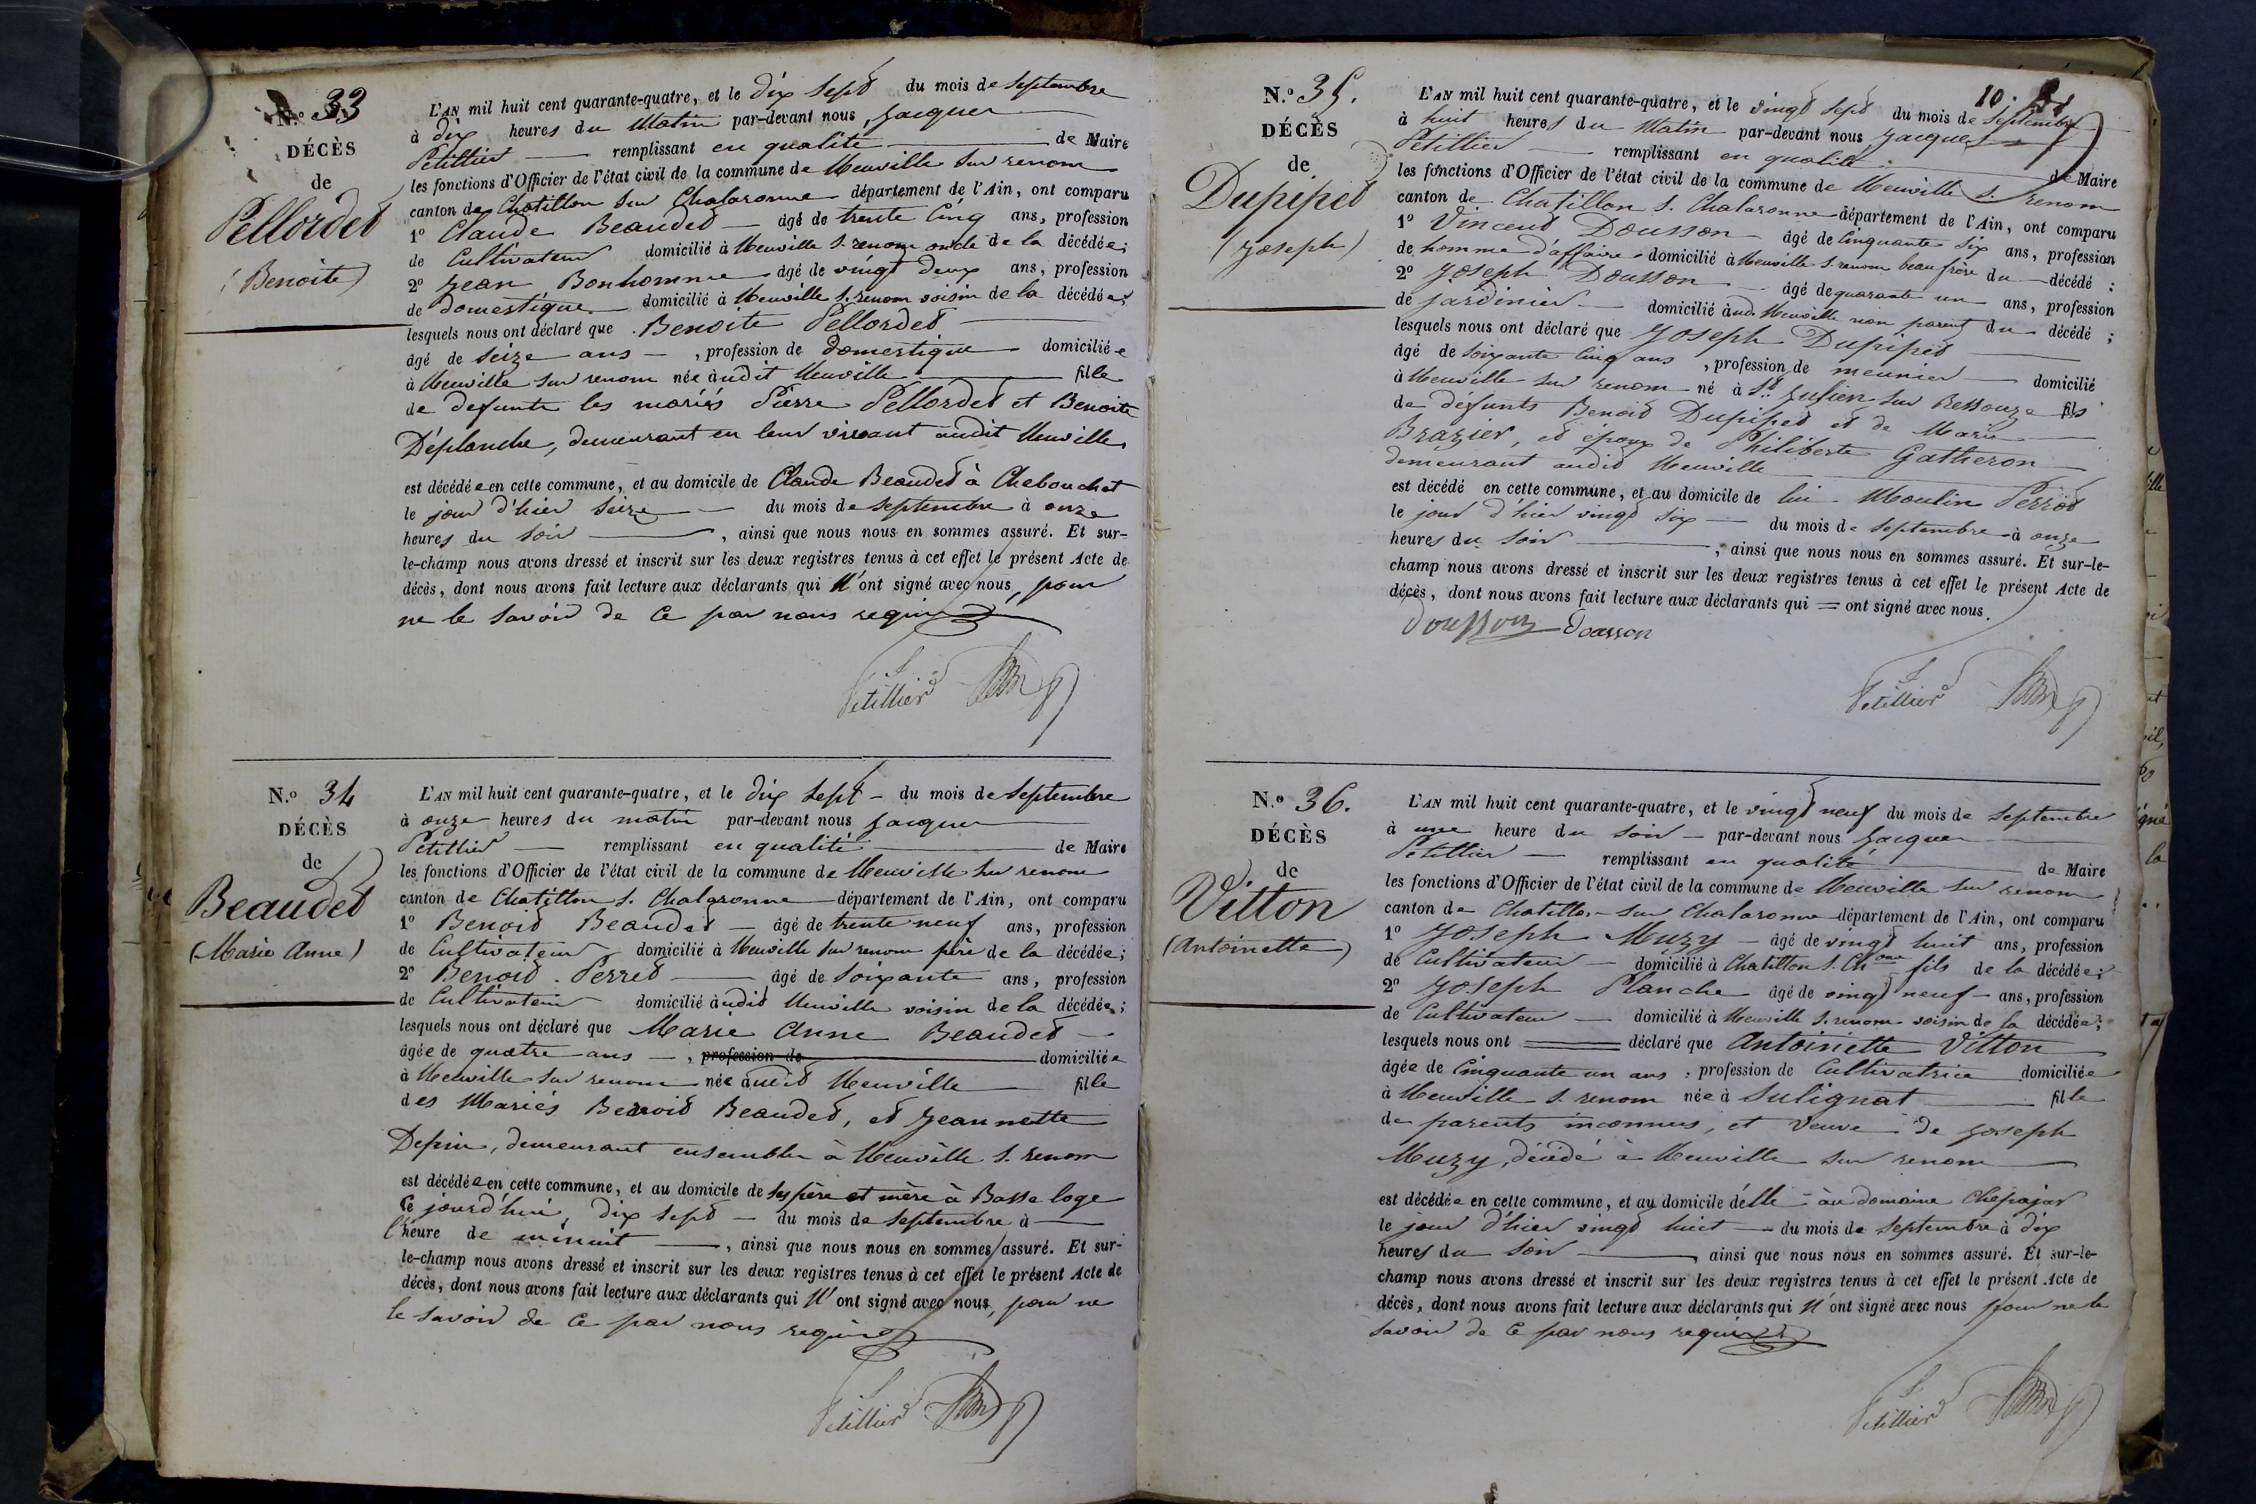 N.º 33
DÉCÈS
de
Pellordet
(Benoite)
L'AN mil huit cent quarante-quatre, et le dix sept du mois de septembre
à dix heures du Matin par-devant nous Jacques
Petillier remplissant en qualité de Maire
les fonctions d'Officier de l'état civil de la commune de Neuville sur renom
canton de Chatillon sur Chalaronne département de l'Ain, ont comparu
1º Claude Beaudet âgé de trente cinq ans, profession
de Cultivateur domicilié à Neuville s. renom oncle de la décédée;
2º Jean Bonhomme âgé de vingt deux ans, profession
de domestique domicilié à Neuville s. renom voisin de la décédée;
lesquels nous ont déclaré que Benoite Pellordet
âgé de seize ans, profession de domestique domiciliée
à Neuville sur renom née àudit Neuville fille
de defunts les mariés Pierre Pellordet et Benoite
Déplanche, demeurant en leur vivant audit Neuville
est décédée en cette commune, et au domicile de Claude Beaudet à Chebouchet
le jour d'hier seize du mois de septembre à onze
heures du soir, ainsi que nous nous en sommes assuré. Et sur-
le-champ nous avons dressé et inscrit sur les deux registres tenus à cet effet le présent Acte de
décès, dont nous avons fait lecture aux déclarants qui n'ont signé avec nous, pour
ne le savoir de ce par nous requis
Petillier
N.º 34
DÉCÈS
de
Beaudet
(Marie Anne)
L'AN mil huit cent quarante-quatre, et le dix sept du mois de septembre
à onze heures du matin par-devant nous Jacques
Petillier remplissant en qualité de Maire
les fonctions d'Officier de l'état civil de la commune de Neuville sur renom
canton de Chatillon s. Chalaronne département de l'Ain, ont comparu
1º Benoit Beaudet âgé de trente neuf ans, profession
de Cultivateur domicilié à Neuville sur renom père de la décédée;
2º Benoit Perret âgé de soixante ans, profession
de Cultivateur domicilié àudit Neuville voisin de la décédée;
lesquels nous ont déclaré que Marie Anne Beaudet
âgée de quatre ans, profession de domiciliée
à Neuville sur renom née audit Neuville fille
des Mariés Benoit Beaudet, et Jeannette
Depin, demeurant ensemble à Neuville s. renom
est décédée en cette commune, et au domicile de ses père et mère à Basse loge
Ce jourd'hui dix sept du mois de septembre à
l'heure de minuit, ainsi que nous nous en sommes assuré. Et sur-
le-champ nous avons dressé et inscrit sur les deux registres tenus à cet effet le présent Acte de
décès, dont nous avons fait lecture aux déclarants qui n'ont signé avec nous, pour ne
le savoir de ce par nous requis
Petillier
10.
N.º 35.
DÉCÈS
de
Dupipet
(Joseph)
L'AN mil huit cent quarante-quatre, et le vingt sept du mois de septembre
à huit heures du Matin par-devant nous Jacques
Petillier remplissant en qualité de Maire
les fonctions d'Officier de l'état civil de la commune de Neuville s. renom
canton de Chatillon s. Chalaronne département de l'Ain, ont comparu
1º Vincent Dousson âgé de Cinquante six ans, profession
de homme d'affaire domicilié à Neuville s. renom beau frère du décédé;
2º Joseph Dousson âgé de quarante un ans, profession
de jardinier domicilié aud. Neuville non parent du décédé;
lesquels nous ont déclaré que Joseph Dupipet
âgé de soixante cinq ans, profession de meunier domicilié
à Neuville sur renom né à St. Julien sur Ressouze fils
de défunts Benoit Dupipet et de Marie
Brazier, et époux de Philiberte Gatheron
demeurant audit Neuville
est décédé en cette commune, et au domicile de lui Moulin Perrot
le jour d'hier vingt six du mois de septembre à onze
heures du soir, ainsi que nous nous en sommes assuré. Et sur-le-
champ nous avons dressé et inscrit sur les deux registres tenus à cet effet le présent Acte de
décès, dont nous avons fait lecture aux déclarants qui = ont signé avec nous.
Dousson Dousson
Petillier
N.º 36.
DÉCÈS
de
Vitton
(Antoinette)
L'AN mil huit cent quarante-quatre, et le vingt neuf du mois de septembre
à une heure du soir par-devant nous Jacques
Petillier remplissant en qualité de Maire
les fonctions d'Officier de l'état civil de la commune de Neuville sur renom
canton de Chatillon sur Chalaronne département de l'Ain, ont comparu
1º Joseph Muzy âgé de vingt huit ans, profession
de Cultivateur domicilié à Chatillon s. Ch.onne fils de la décédée;
2º Joseph Planche âgé de vingt neuf ans, profession
de Cultivateur domicilié à Neuville s. renom voisin de la décédée;
lesquels nous ont déclaré que Antoinette Vitton
âgée de Cinquante un ans; profession de Cultivatrice domiciliée
à Neuville s. renom née à Sulignat fille
de parents inconnus, et Veuve de Joseph
Muzy, décédé à Neuville sur renom
est décédée en cette commune, et au domicile d'elle àu domaine Chepajas
le jour d'hier vingt huit du mois de septembre à dix
heures du soir, ainsi que nous nous en sommes assuré. Et sur-le-
champ nous avons dressé et inscrit sur les deux registres tenus à cet effet le présent Acte de
décès, dont nous avons fait lecture aux déclarants qui n'ont signé avec nous pour ne le
savoir de ce par nous requis
Petillier